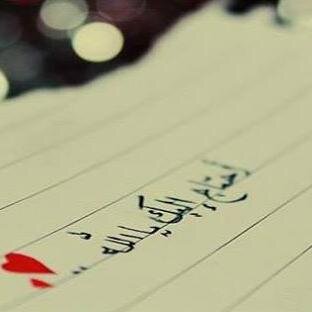 أحتاج إليك يا الله ..